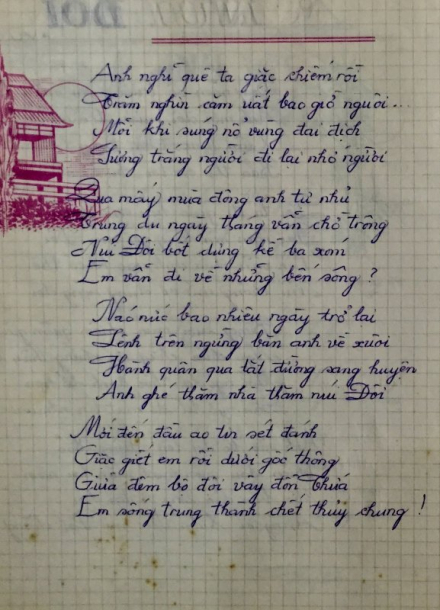 Anh nghĩ quê ta giặc chiếm rồi
Trăm nghìn căm uất bao giờ nguôi...
Mỗi khi súng nổ vùng đai địch
Sương trắng người đi lại nhớ người
Qua mấy mùa đông anh tự nhủ
Trung du ngày tháng vẫn chờ trông
Núi Đôi bốt dựng kề ba xóm
Em vẫn đi về những bến sông?
Náo nức bao nhiêu ngày trở lại
Lệnh trên ngừng bắn anh về xuôi
Hành quân qua tắt đường sang huyện
Anh ghé thăm nhà thăm núi Đôi
Mới đến đầu ao tin sét đánh
Giặc giết em rồi dưới gốc thông
Giữa đêm bộ đội vây đồn Thứa
Em sống trung thành chết thủy chung!